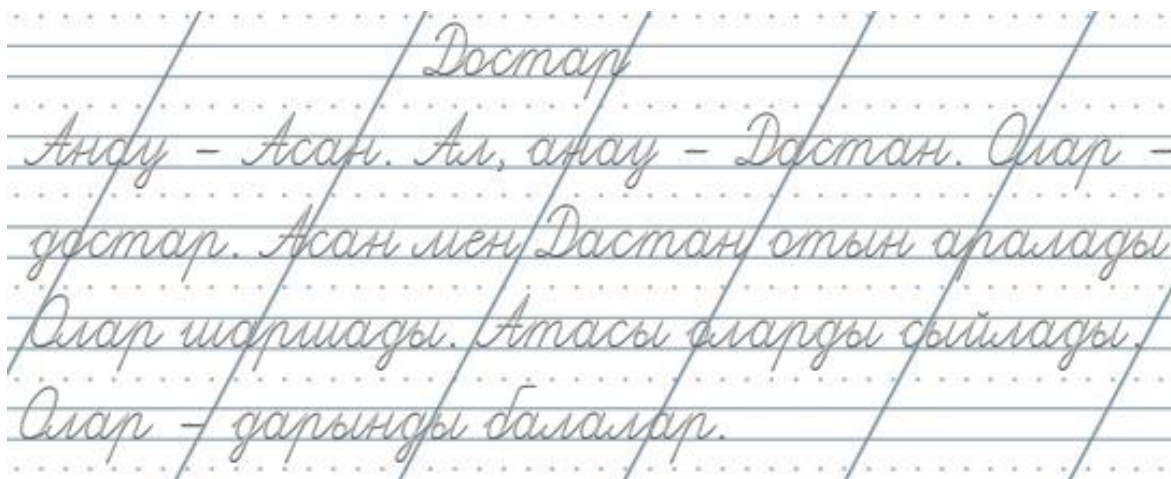 Достар
Анау – Асан. Ал, анау – Дастан. Олар –
достар. Асан мен Дастан отын аралады
Олар шаршады. Атасы оларды сыйлады.
Олар – дарынды балалар.